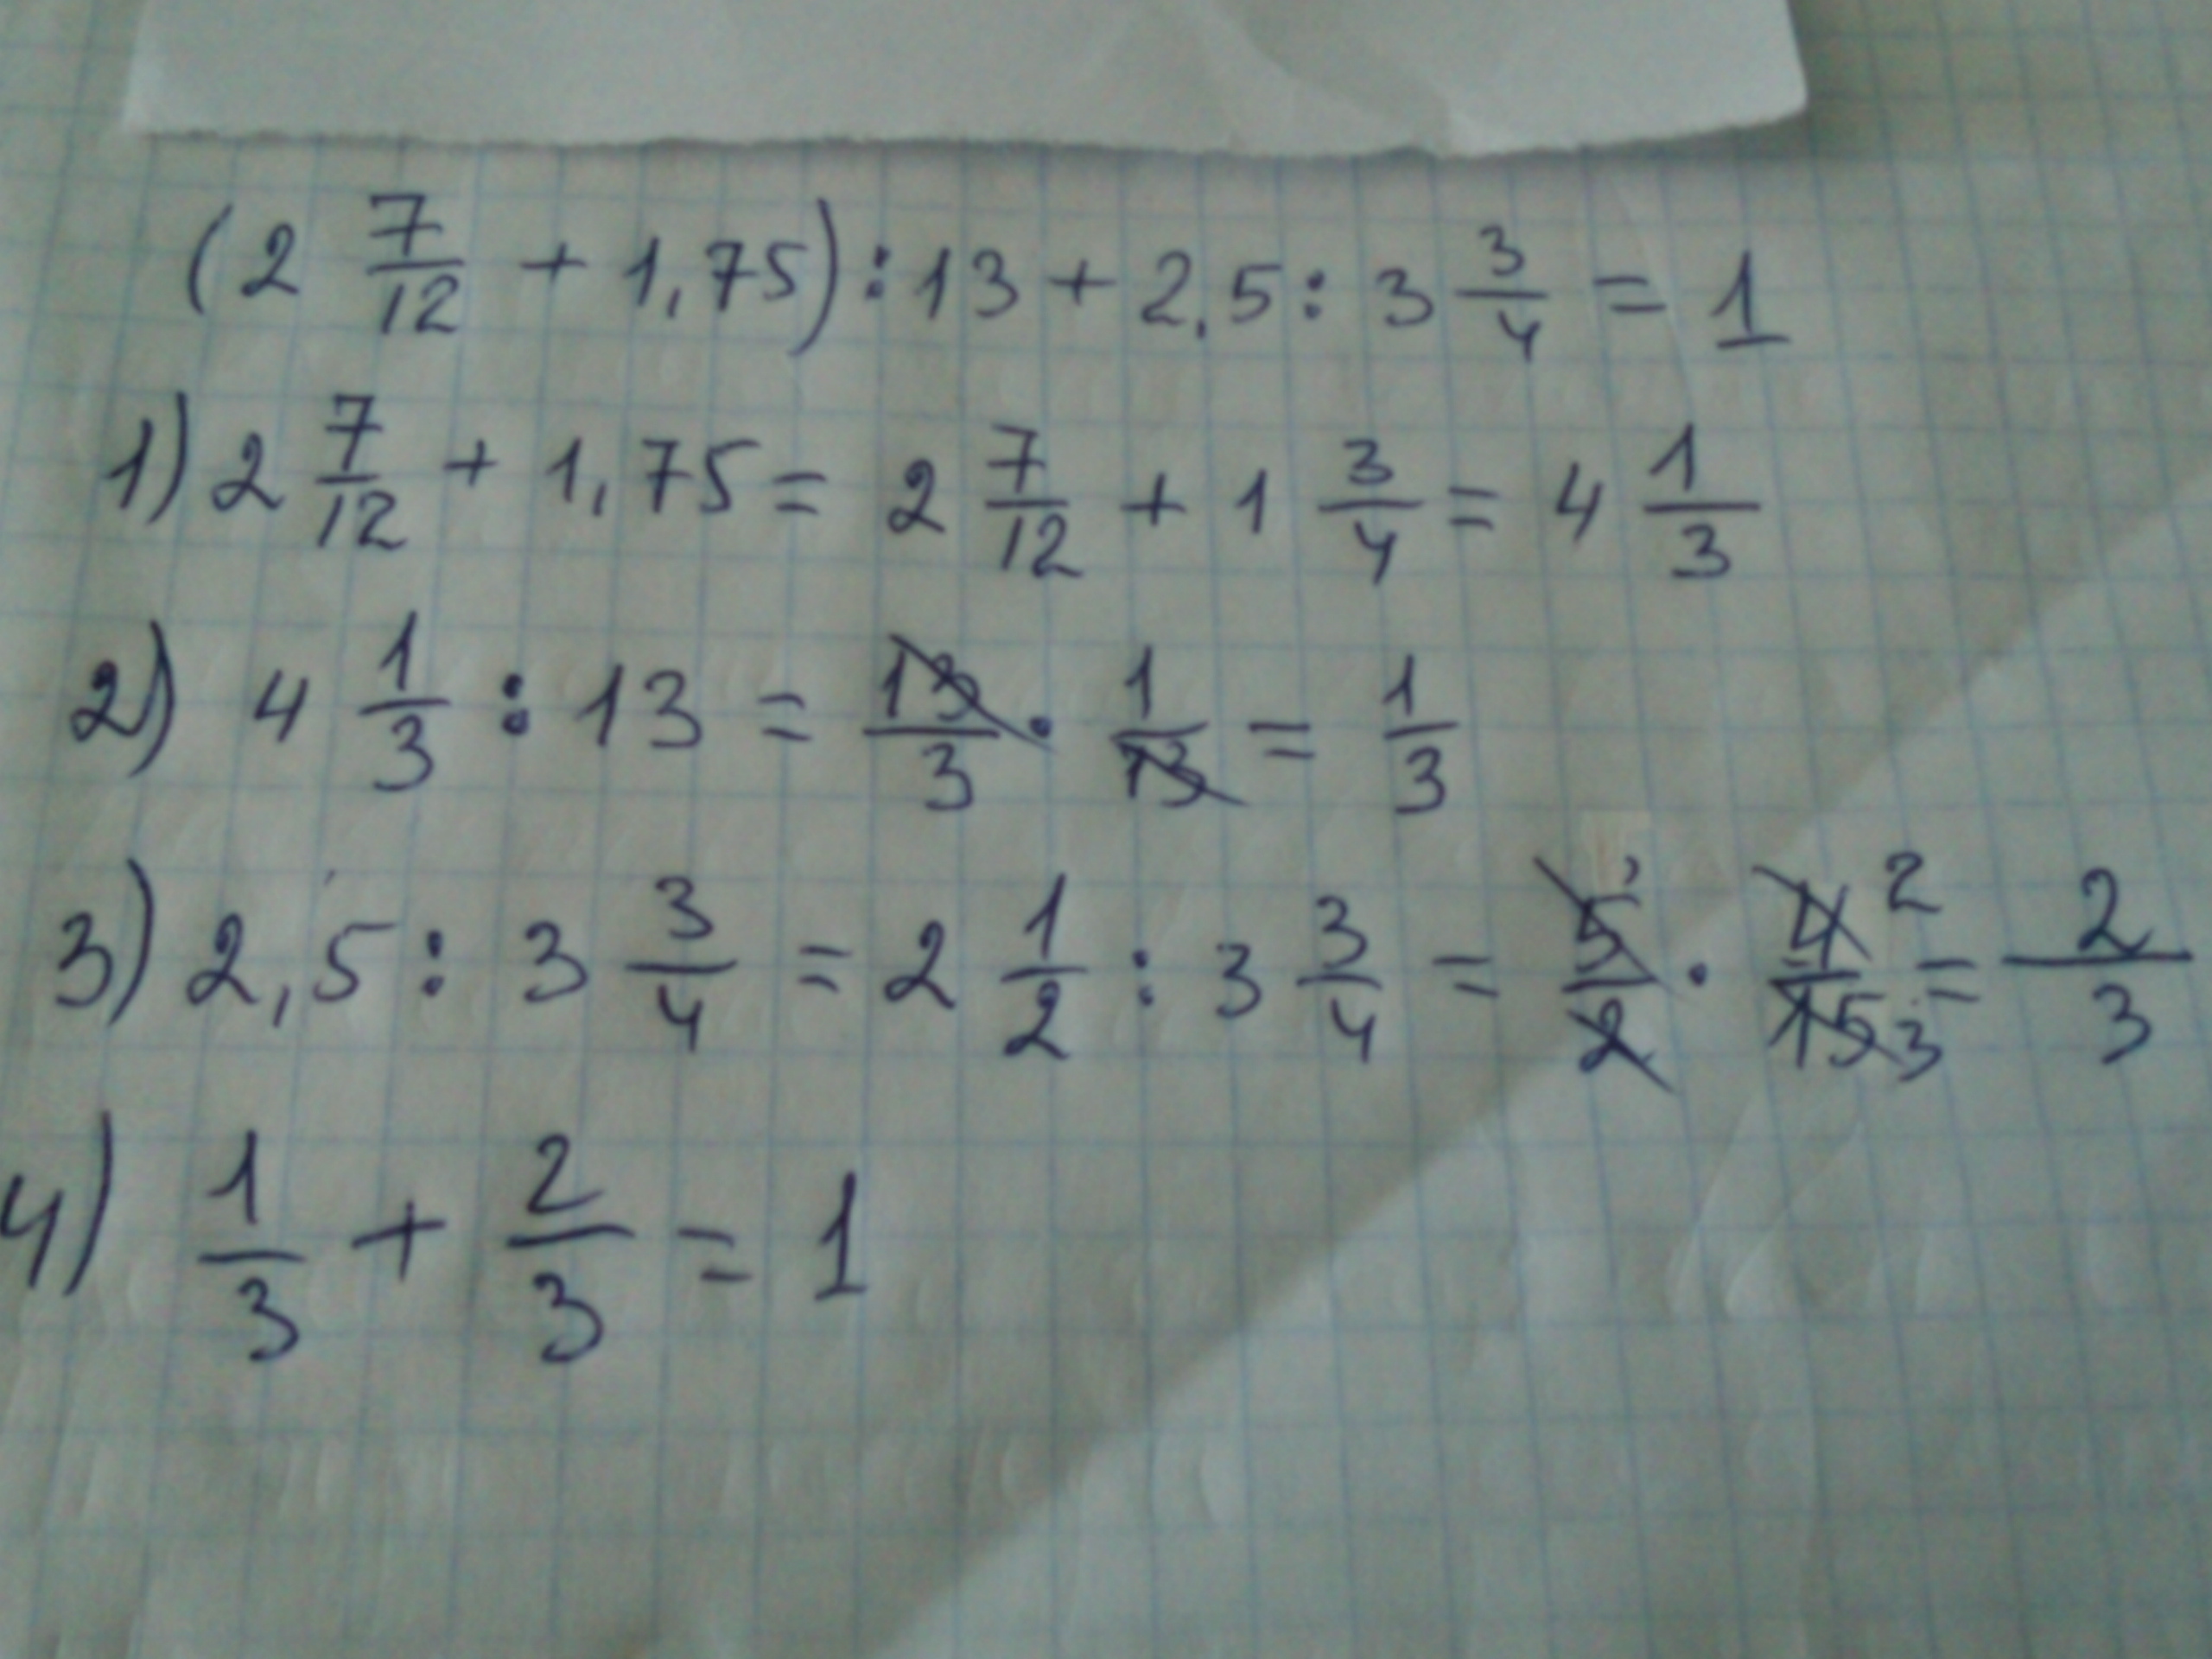 (2 7/12 + 1,75) : 13 + 2,5 : 3 3/4 = 1
1) 2 7/12 + 1,75 = 2 7/12 + 1 3/4 = 4 1/3
2) 4 1/3 : 13 = 13/3 · 1/13 = 1/3
3) 2,5 : 3 3/4 = 2 1/2 : 3 3/4 = 5/2 · 4 2/15 3 = 2/3
4) 1/3 + 2/3 = 1